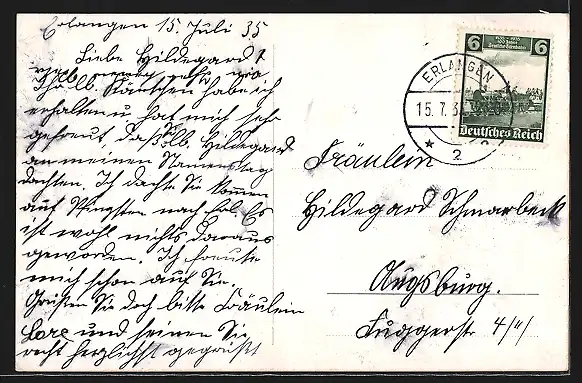 Erlangen 15. Juli 35
Liebe Hildegard!
lb. Kärtchen habe ich
erhalten u. hat mich sehr
gefreut daß lb. Hildegard
an meinen Namenstag
dachten. Ich dachte Sie kommen
auf Pfingsten nach Erl. Es
ist wohl nichts daraus
geworden. Ich freute
mich schon auf Sie.
Grüßen Sie doch bitte Fräulein
Lore und seinen Sie
recht herzlichst gegrüßt
6 6
Deutsches Reich
ERLANGEN
15.7.35
* 2
Fräulein
Hildegard Schnarbeck
Augsburg.
Fuggerstr 4/II/